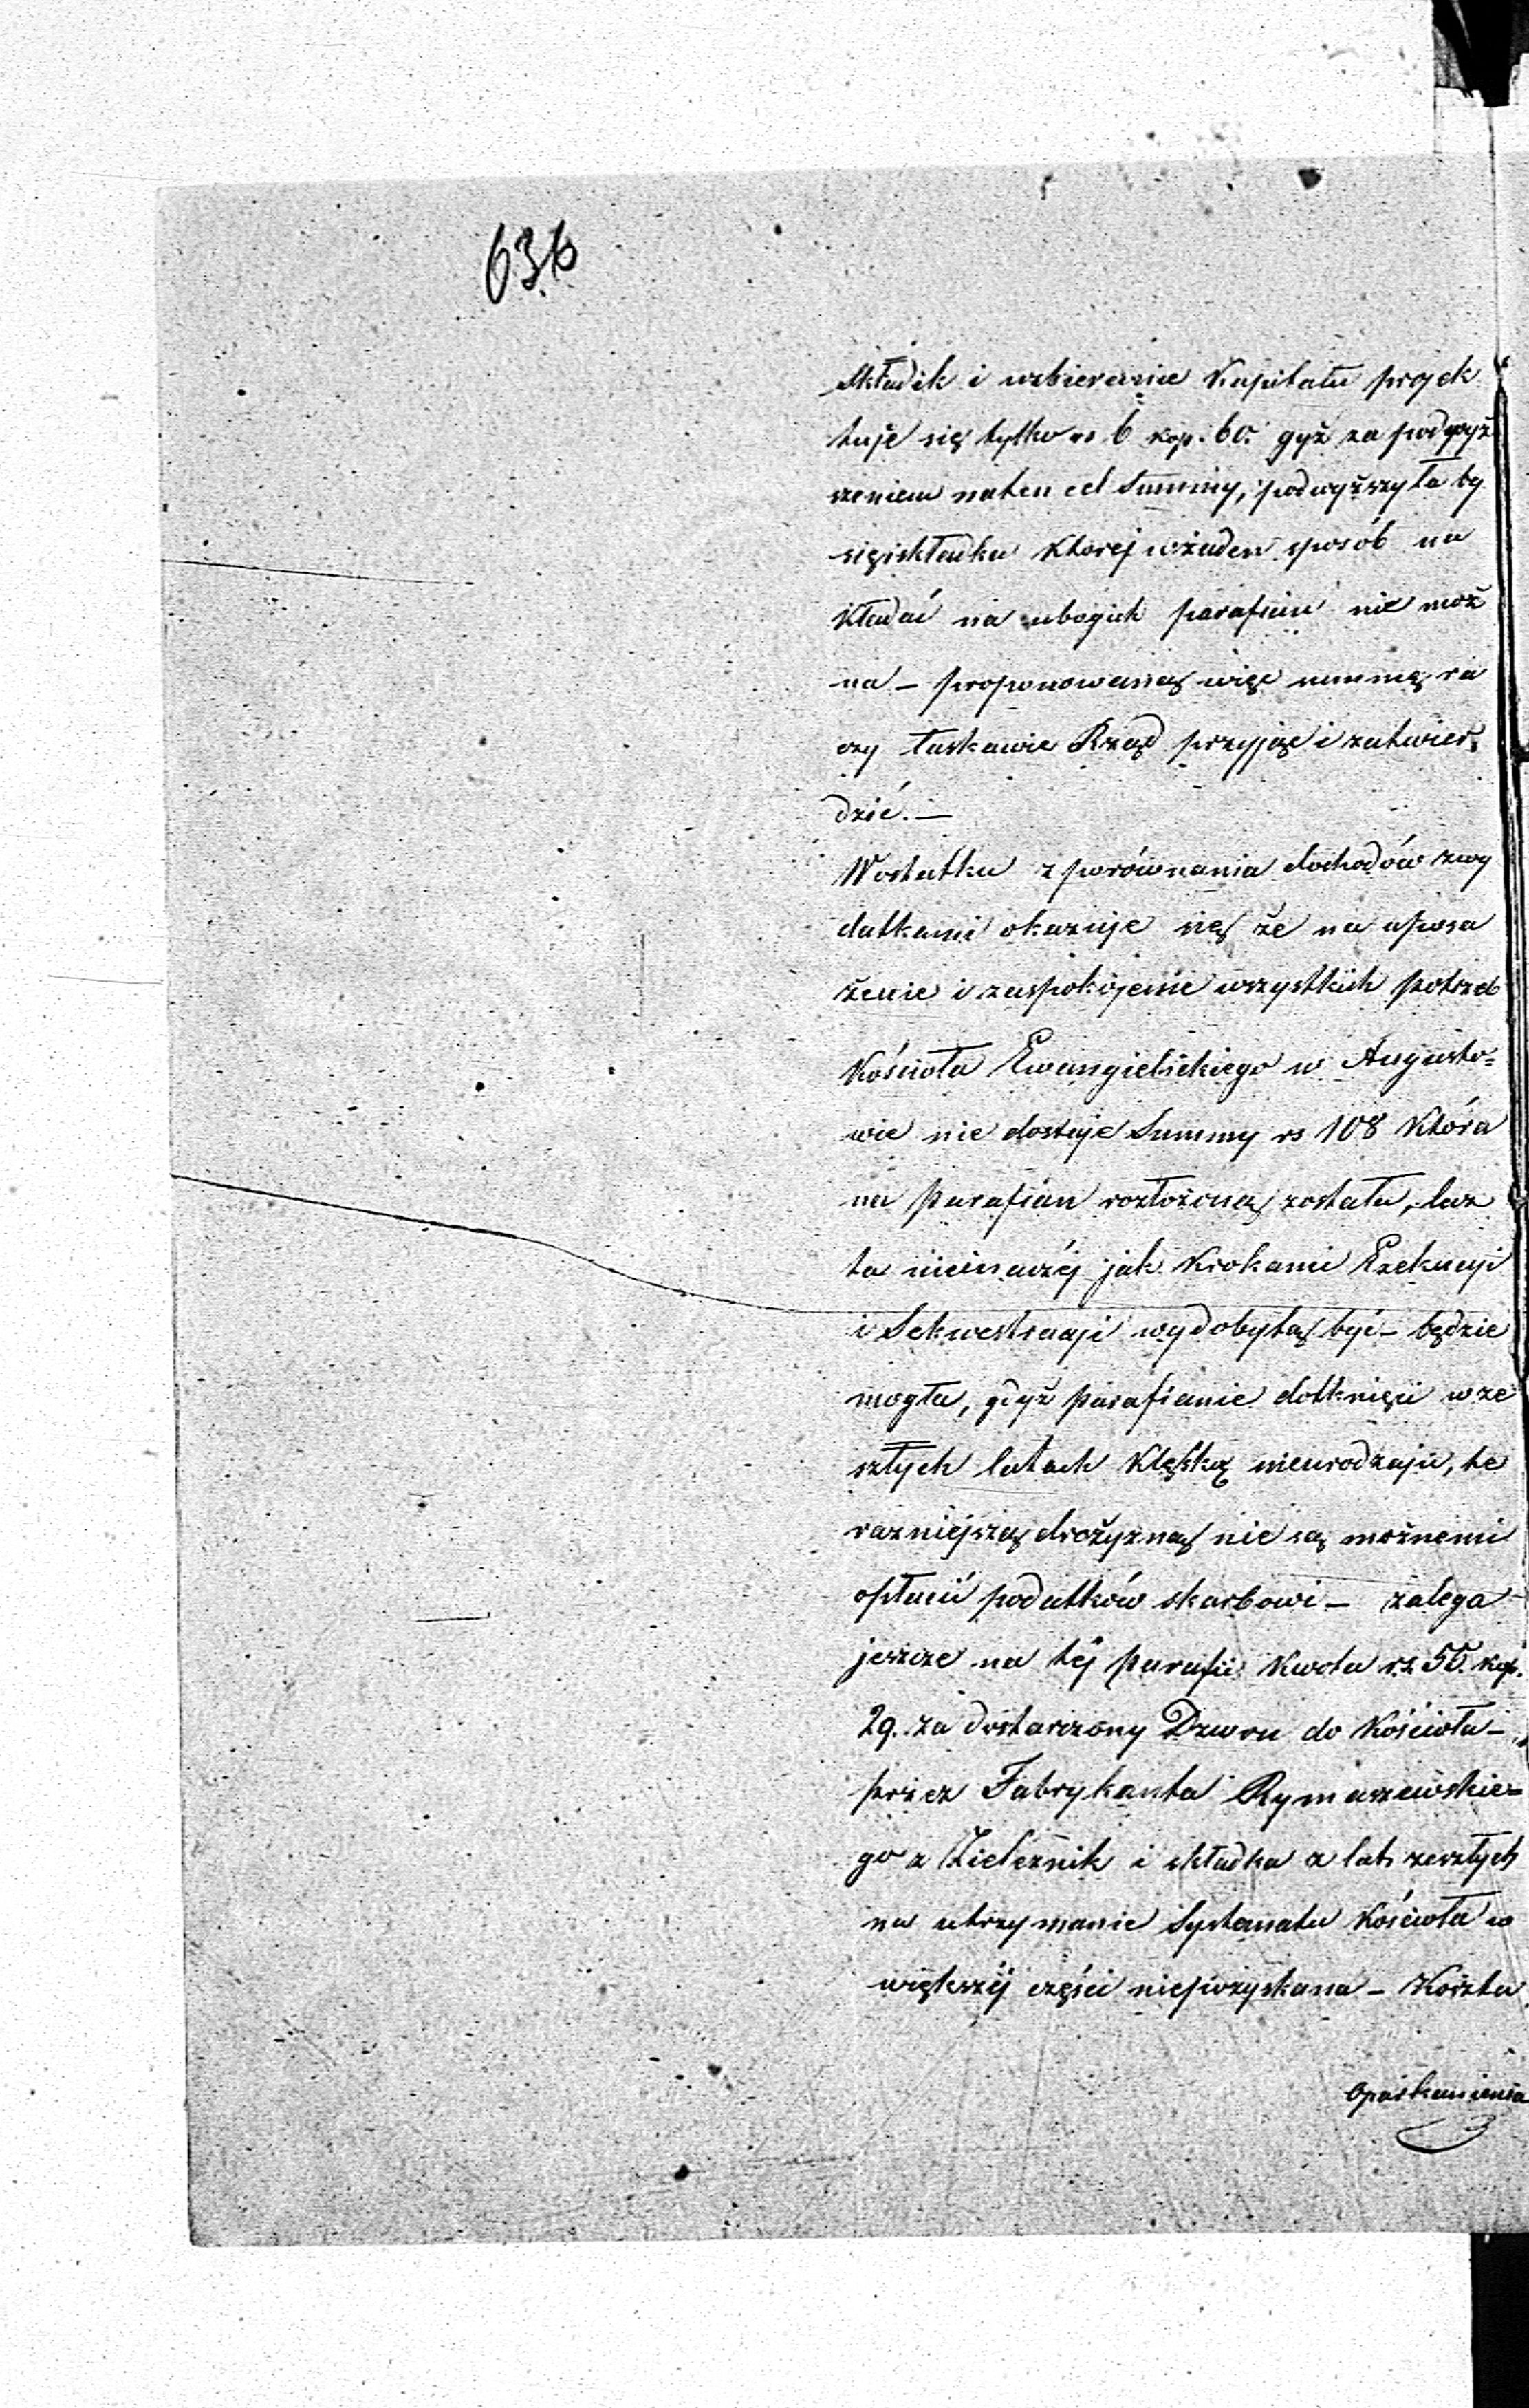 636
składek i wzbieranie Kapitału projek
tuje się tylko rs 6 kop. 60. gyż za podwyż
szeniem naten cel Summy, podwyższyła by
się i składka Ktorej wżaden sposób na
kładać na ubogich parafian nie moż
na – proponowaną więc summę ra
czy łaskawie Rząd przyjąć i zatwier,
dzić. –
Wostatku z porównania dochodów zwy
datkami okazuje się że na uposa
żenie i zaspokojenie wszystkich potrzeb
Kościoła Ewangielickiego w Augusto=
wie nie dostaje Summy rs 108 Która
na parafian rozłożoną została, lecz
ta nieinaczéj jak Krokami Exekucyi
i Sekwestracyi wydobytą być – będzie
mogła, gdyż parafianie dotknięci w ze
szłych latach Klęską nieurodzaju, te
razniejszą drożyzną nie są możnemi
opłacić podatków skarbowi – zalega
jeszcze na téj parafii Kwota rs 55. kop.
29. za dostarczony Dzwon do Kościoła –
przez Fabrykanta Rymaszewskie=
go z i składka z lat zeszłych
na utrzymanie Systematu Kościoła w
większéj części niepozyskana – Koszta
oparkanienia